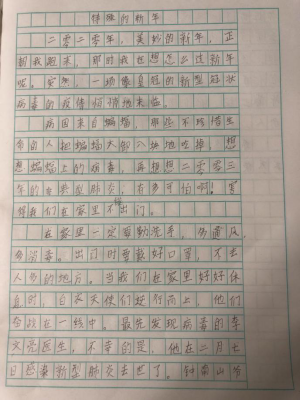 特殊的新年
二零二零年，美妙的新年，正
朝我跑来，那时我在想怎么过新年
呢。突然，一场像皇冠的新型冠状
病毒的疫情悄悄地来临。
病因来自蝙蝠，那些不珍惜生
命的人把蝙蝠大部入块地吃掉，想
想蝙蝠上的病毒，再想想二零零三
年的典型肺炎，有多可怕啊！害
得我们在家里不能出门。
在家里一定要勤洗手，多通风，
多消毒。出门时要戴好口罩，不去
人多的地方。当我们在家里好好休
息时，白衣天使们逆行而上，他们
奋战在一线中。最先发现病毒的李
文亮医生，不幸的是，他在二月七
日感染新型肺炎出世了。钟南山爷